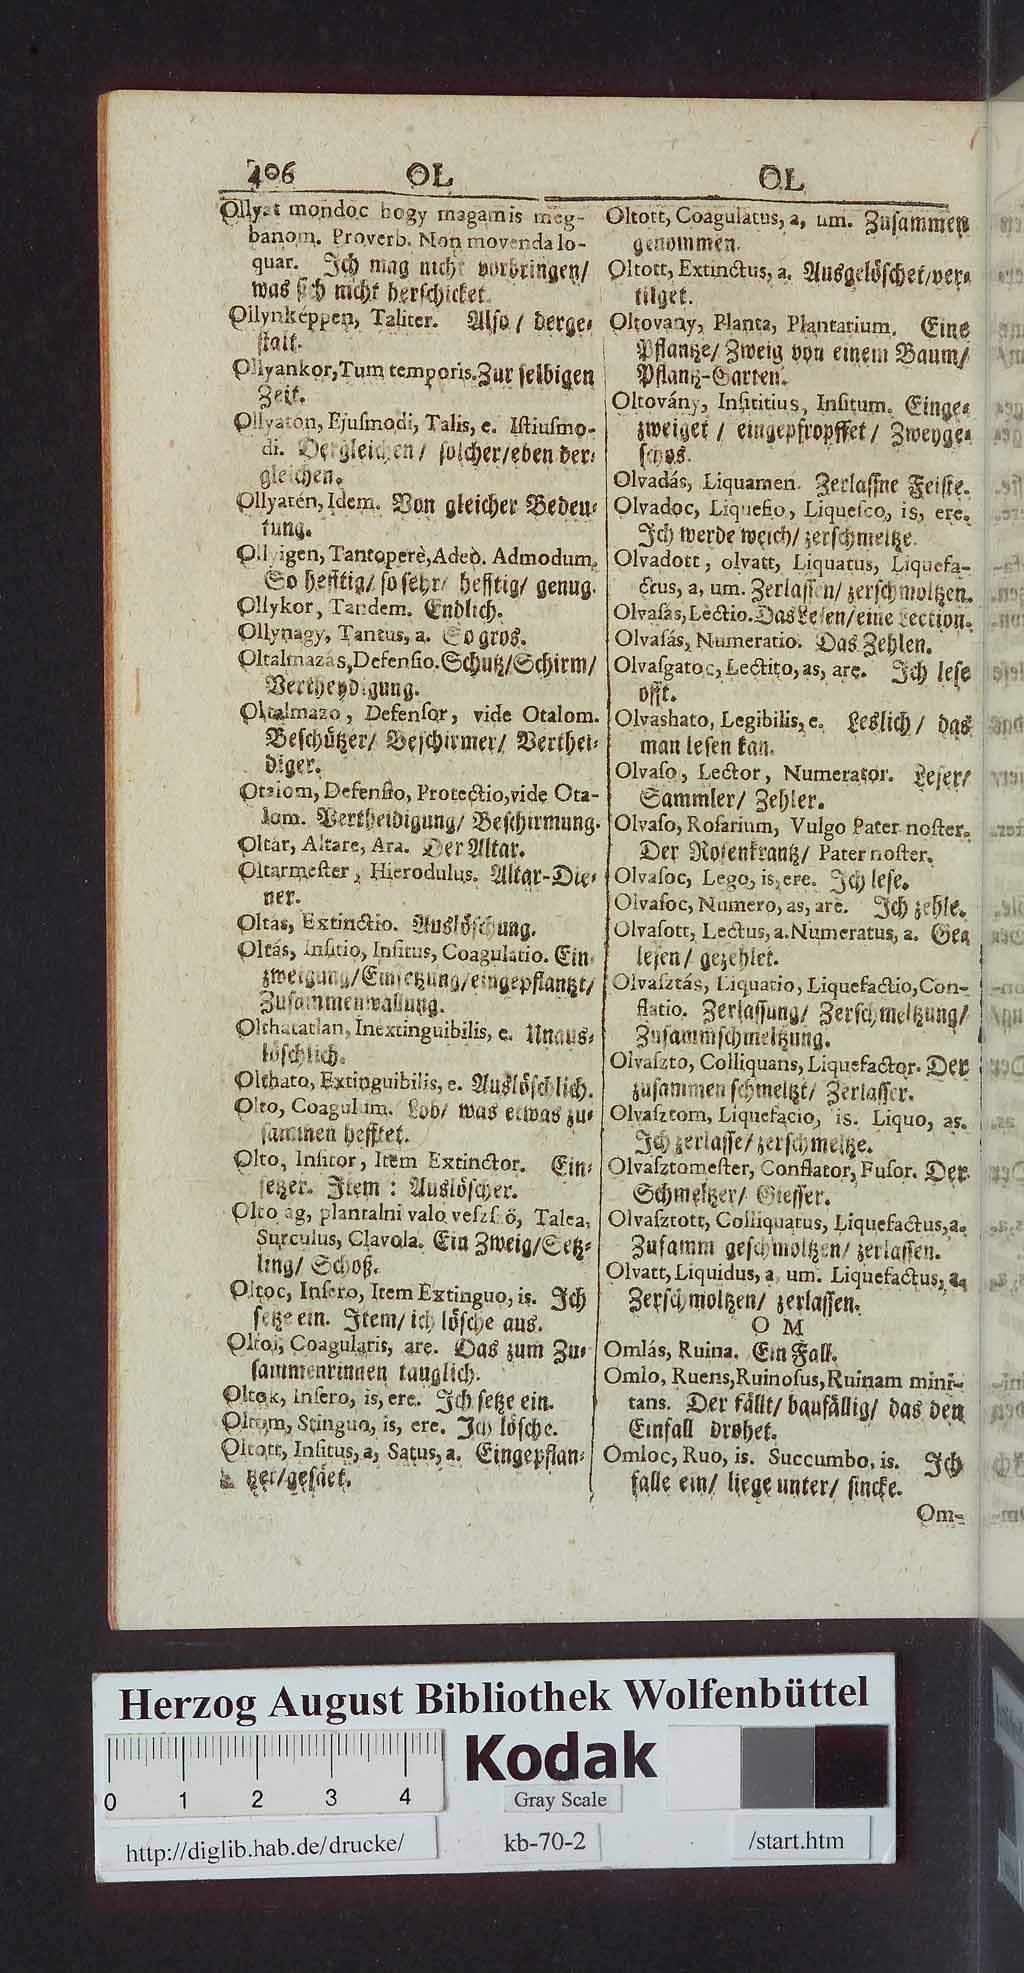 406 OL OL
Ollyat mondoc hogy magamis meg-
banom. Proverb. Non movenda lo-
quar. Ich mag nicht vorbringen/
was sich nicht herschicket.
Ollynképpen, Taliter. Also/ derge-
stalt.
Ollyankor, Tum temporis. Zur selbigen
Zeit.
Ollyatón, Ejusmodi, Talis, e. Istiusmo-
di. Dergleichen/ solcher/eben der-
gleichen.
Ollyatén, Idem. Von gleicher Bedeu-
tung.
Ollyigen, Tantoperè, Adeò. Admodum.
So hefftig/ so sehr/ hefftig/ genug.
Ollykor, Tandem. Endlich.
Ollynagy, Tantus, a. So gros.
Oltalmazás, Defensio. Schutz/Schirm/
Vertheydigung.
Oltalmazo, Defensor, vide Otalom.
Beschützer/ Beschirmer/ Verthei-
diger.
Otaiom, Defensio, Protectio, vide Ota-
lom. Vertheidigung/ Beschirmung.
Oltár, Altare, Ara. Der Altar.
Oltarmester, Hierodulus. Altar-Die-
ner.
Oltás, Extinctio. Auslöschung.
Oltás, Insitio, Insitus, Coagulatio. Ein-
zweigung/Einsetzung/eingepflantzt/
Zusammenwallung.
Olthatatlan, Inextinguibilis, e. Unaus-
löschlich.
Olthato, Extinguibilis, e. Auslöschlich.
Olto, Coagulum. Lob/ was etwas zu-
sammen hefftet.
Olto, Insitor, Item Extinctor. Ein-
setzer. Item: Auslöscher.
Olto ag, plantalni valo veszszö, Talea,
Surculus, Clavola. Ein Zweig/Setz-
ling/ Schoß.
Oltoc, Insero, Item Extinguo, is. Ich
setze ein. Item/ ich lösche aus.
Oltoi, Coagularis, are. Das zum Zu-
sammenrinnen tauglich.
Oltok, Insero, is, ere. Ich setze ein.
Oltom, Stinguo, is, ere. Ich lösche.
Oltott, Insitus, a, Satus, a. Eingepflan-
tzet/gesäet.
Oltott, Coagulatus, a, um. Zusammen
genommen.
Oltott, Extinctus, a. Ausgelöschet/ver-
tilget.
Oltovany, Planta, Plantarium. Eine
Pflantze/ Zweig von einem Baum/
Pflantz-Garten.
Oltovány, Insititius, Insitum. Einge-
zweiget/ eingepfropffet/ Zweyge-
schos.
Olvadás, Liquamen. Zerlassne Feiste.
Olvadoc, Liquefio, Liquesco, is, ere.
Ich werde weich/ zerschmeltze.
Olvadott, olvatt, Liquatus, Liquefa-
ctus, a, um. Zerlassen/ zerschmoltzen.
Olvasás, Lectio. Das Lesen/eine Lection.
Olvasás, Numeratio. Das Zehlen.
Olvasgatoc, Lectito, as, are. Ich lese
offt.
Olvashato, Legibilis, e. Leslich/ das
man lesen kan.
Olvaso, Lector, Numerator. Leser/
Sammler/ Zehler.
Olvaso, Rosarium, Vulgo Pater noster.
Der Rosenkrantz/ Pater noster.
Olvasoc, Lego, is, ere. Ich lese.
Olvasoc, Numero, as, are. Ich zehle.
Olvasott, Lectus, a. Numeratus, a. Ge-
lesen/ gezehlet.
Olvasztás, Liquatio, Liquefactio, Con-
flatio. Zerlassung/ Zerschmeltzung/
Zusammschmeltzung.
Olvaszto, Colliquans, Liquefactor. Der
zusammen schmeltzt/ Zerlasser.
Olvasztom, Liquefacio, is. Liquo, as.
Ich zerlasse/ zerschmeltze.
Olvasztomester, Conflator, Fusor. Der
Schmeltzer/ Giesser.
Olvasztott, Colliquatus, Liquefactus, a.
Zusamm geschmoltzen/ zerlassen.
Olvatt, Liquidus, a, um. Liquefactus, a.
Zerschmoltzen/ zerlassen.
O M
Omlás, Ruina. Ein Fall.
Omlo, Ruens, Ruinosus, Ruinam mini-
tans. Der fällt/ baufällig/ das den
Einfall drohet.
Omloc, Ruo, is. Succumbo, is. Ich
falle ein/ liege unter/ sincke.
Om-
Herzog August Bibliothek Wolfenbüttel
0 1 2 3 4
Kodak
Gray Scale
http://diglib.hab.de/drucke/ kb-70-2 /start.htm